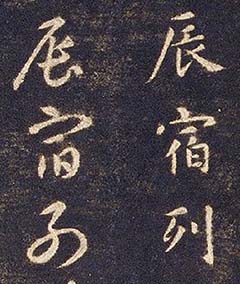 辰宿列
辰宿列